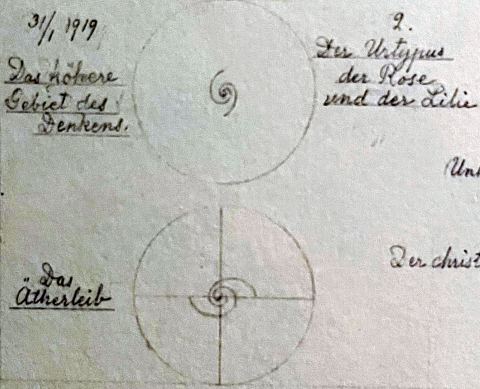 31/1 1919
Das höhere
Gebiet des
Denkens.
2.
Der Urtypus
der Rose
und der Lilie
Der christ
Das
Ätherleib